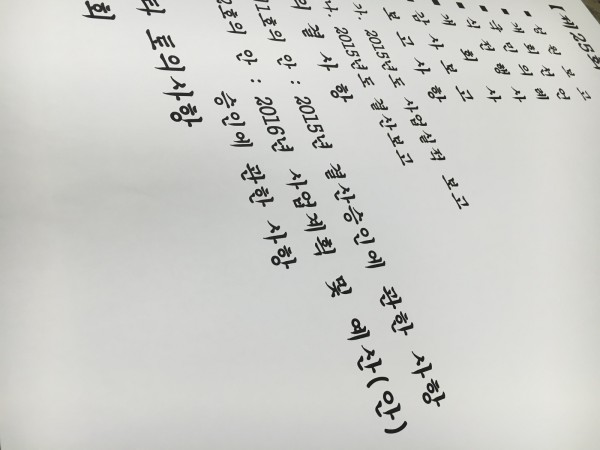 【제25회
성원보고
개회선언
국민의례
식전행사
개회
감사보고
보고사항
가. 2015년도 사업실적 보고
나. 2015년도 결산보고
의결사항
1호의 안 : 2015년 결산승인에 관한 사항
2호의 안 : 2016년 사업계획 및 예산(안)
승인에 관한 사항
타 토의사항
회